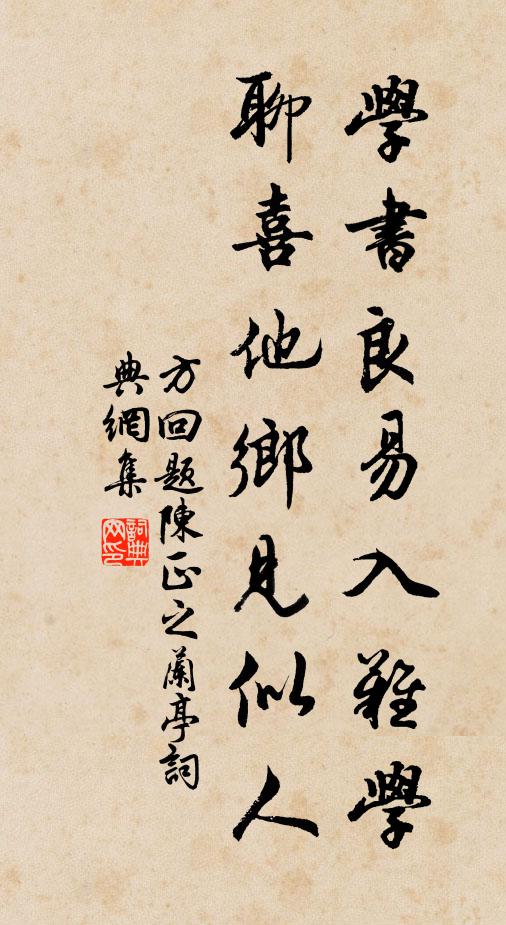 學書良易入難學
聊喜他鄉見似人
方回題陳正之蘭亭詞
典網集
詞典網印